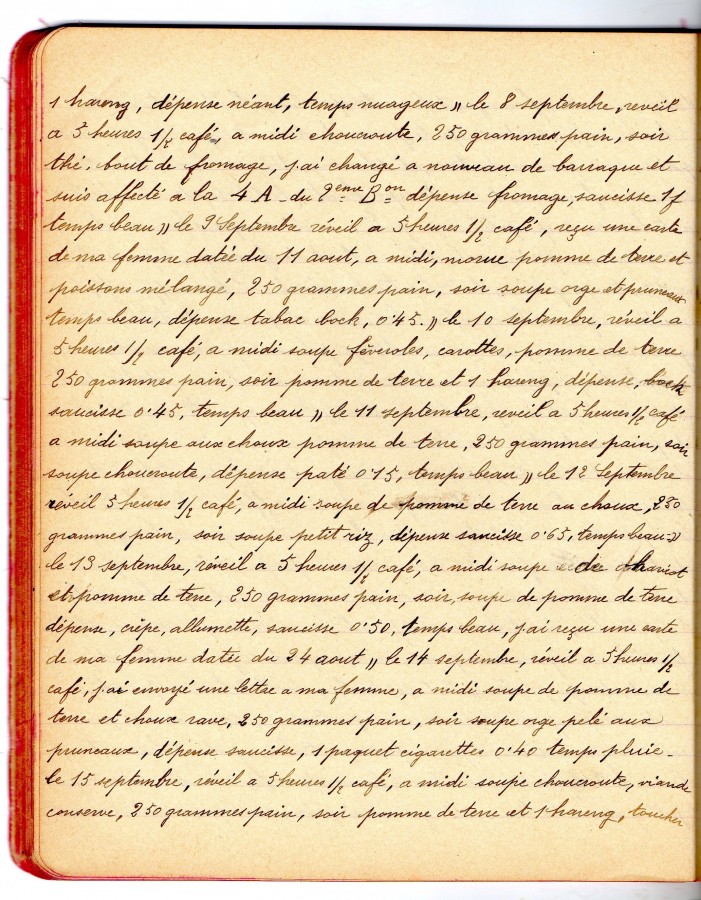 1 hareng, dépense néant, temps nuageux „ le 8 septembre, reveil
a 5 heures 1/2 café, a midi choucroute, 250 grammes pain, soir
thé. bout de fromage, j'ai changé a nouveau de barraque et
suis affecté a la 4 A - du 2eme Bon dépense fromage, saucisse 1f
temps beau „ le 9 Septembre réveil a 5 heures 1/2 café, reçu une carte
de ma femme datée du 11 aout, a midi, morue pomme de terre et
poissons mélangé, 250 grammes pain, soir soupe orge et pruneaux
temps beau, dépense tabac bock, 0'45. „ le 10 septembre, réveil a
5 heures 1/2 café, a midi soupe féveroles, carottes, pomme de terre
250 grammes pain, soir pomme de terre et 1 hareng, dépense, bock
saucisse 0'45, temps beau „ le 11 septembre, reveil a 5 heures 1/2 café
a midi soupe aux choux pomme de terre, 250 grammes pain, soir
soupe choucroute, dépense paté 0'15, temps beau „ le 12 Septembre
réveil 5 heures 1/2 café, a midi soupe de pomme de terre au choux, 250
grammes pain, soir soupe petit riz, dépense saucisse 0'65, temps beau - „
le 13 septembre, réveil a 5 heures 1/2 café, a midi soupe de haricot
et pomme de terre, 250 grammes pain, soir, soupe de pomme de terre
dépense, crêpe, allumette, saucisse 0'50, temps beau, j'ai reçu une carte
de ma femme datée du 24 aout „ le 14 septembre, réveil a 5 heures 1/2
café, j'ai envoyé une lettre a ma femme, a midi soupe de pomme de
terre et choux rave, 250 grammes pain, soir soupe orge pelé aux
pruneaux, dépense saucisse, 1 paquet cigarettes 0'40 temps pluie -
le 15 septembre, réveil a 5 heures 1/2 café, a midi soupe choucroute, viande
conserve, 250 grammes pain, soir pomme de terre et 1 hareng, toucher